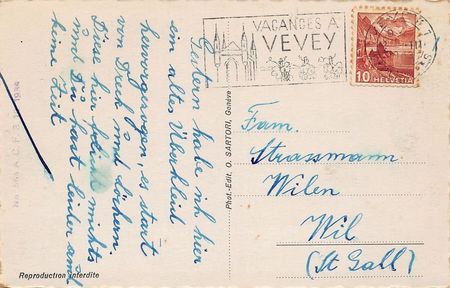 VACANCES A
VEVEY
10 HELVETIA
Gestern habe ich hier
ein altes Überkleid
hervorgezogen, es starrt
von Dreck und Löchern
Diese hier nichts
und Du hast leider auch
keine Zeit
Phot.-Edit. O. SARTORI, Genève
Fam.
Strassmann
Wilen
Wil
(St Gall)
Reproduction interdite